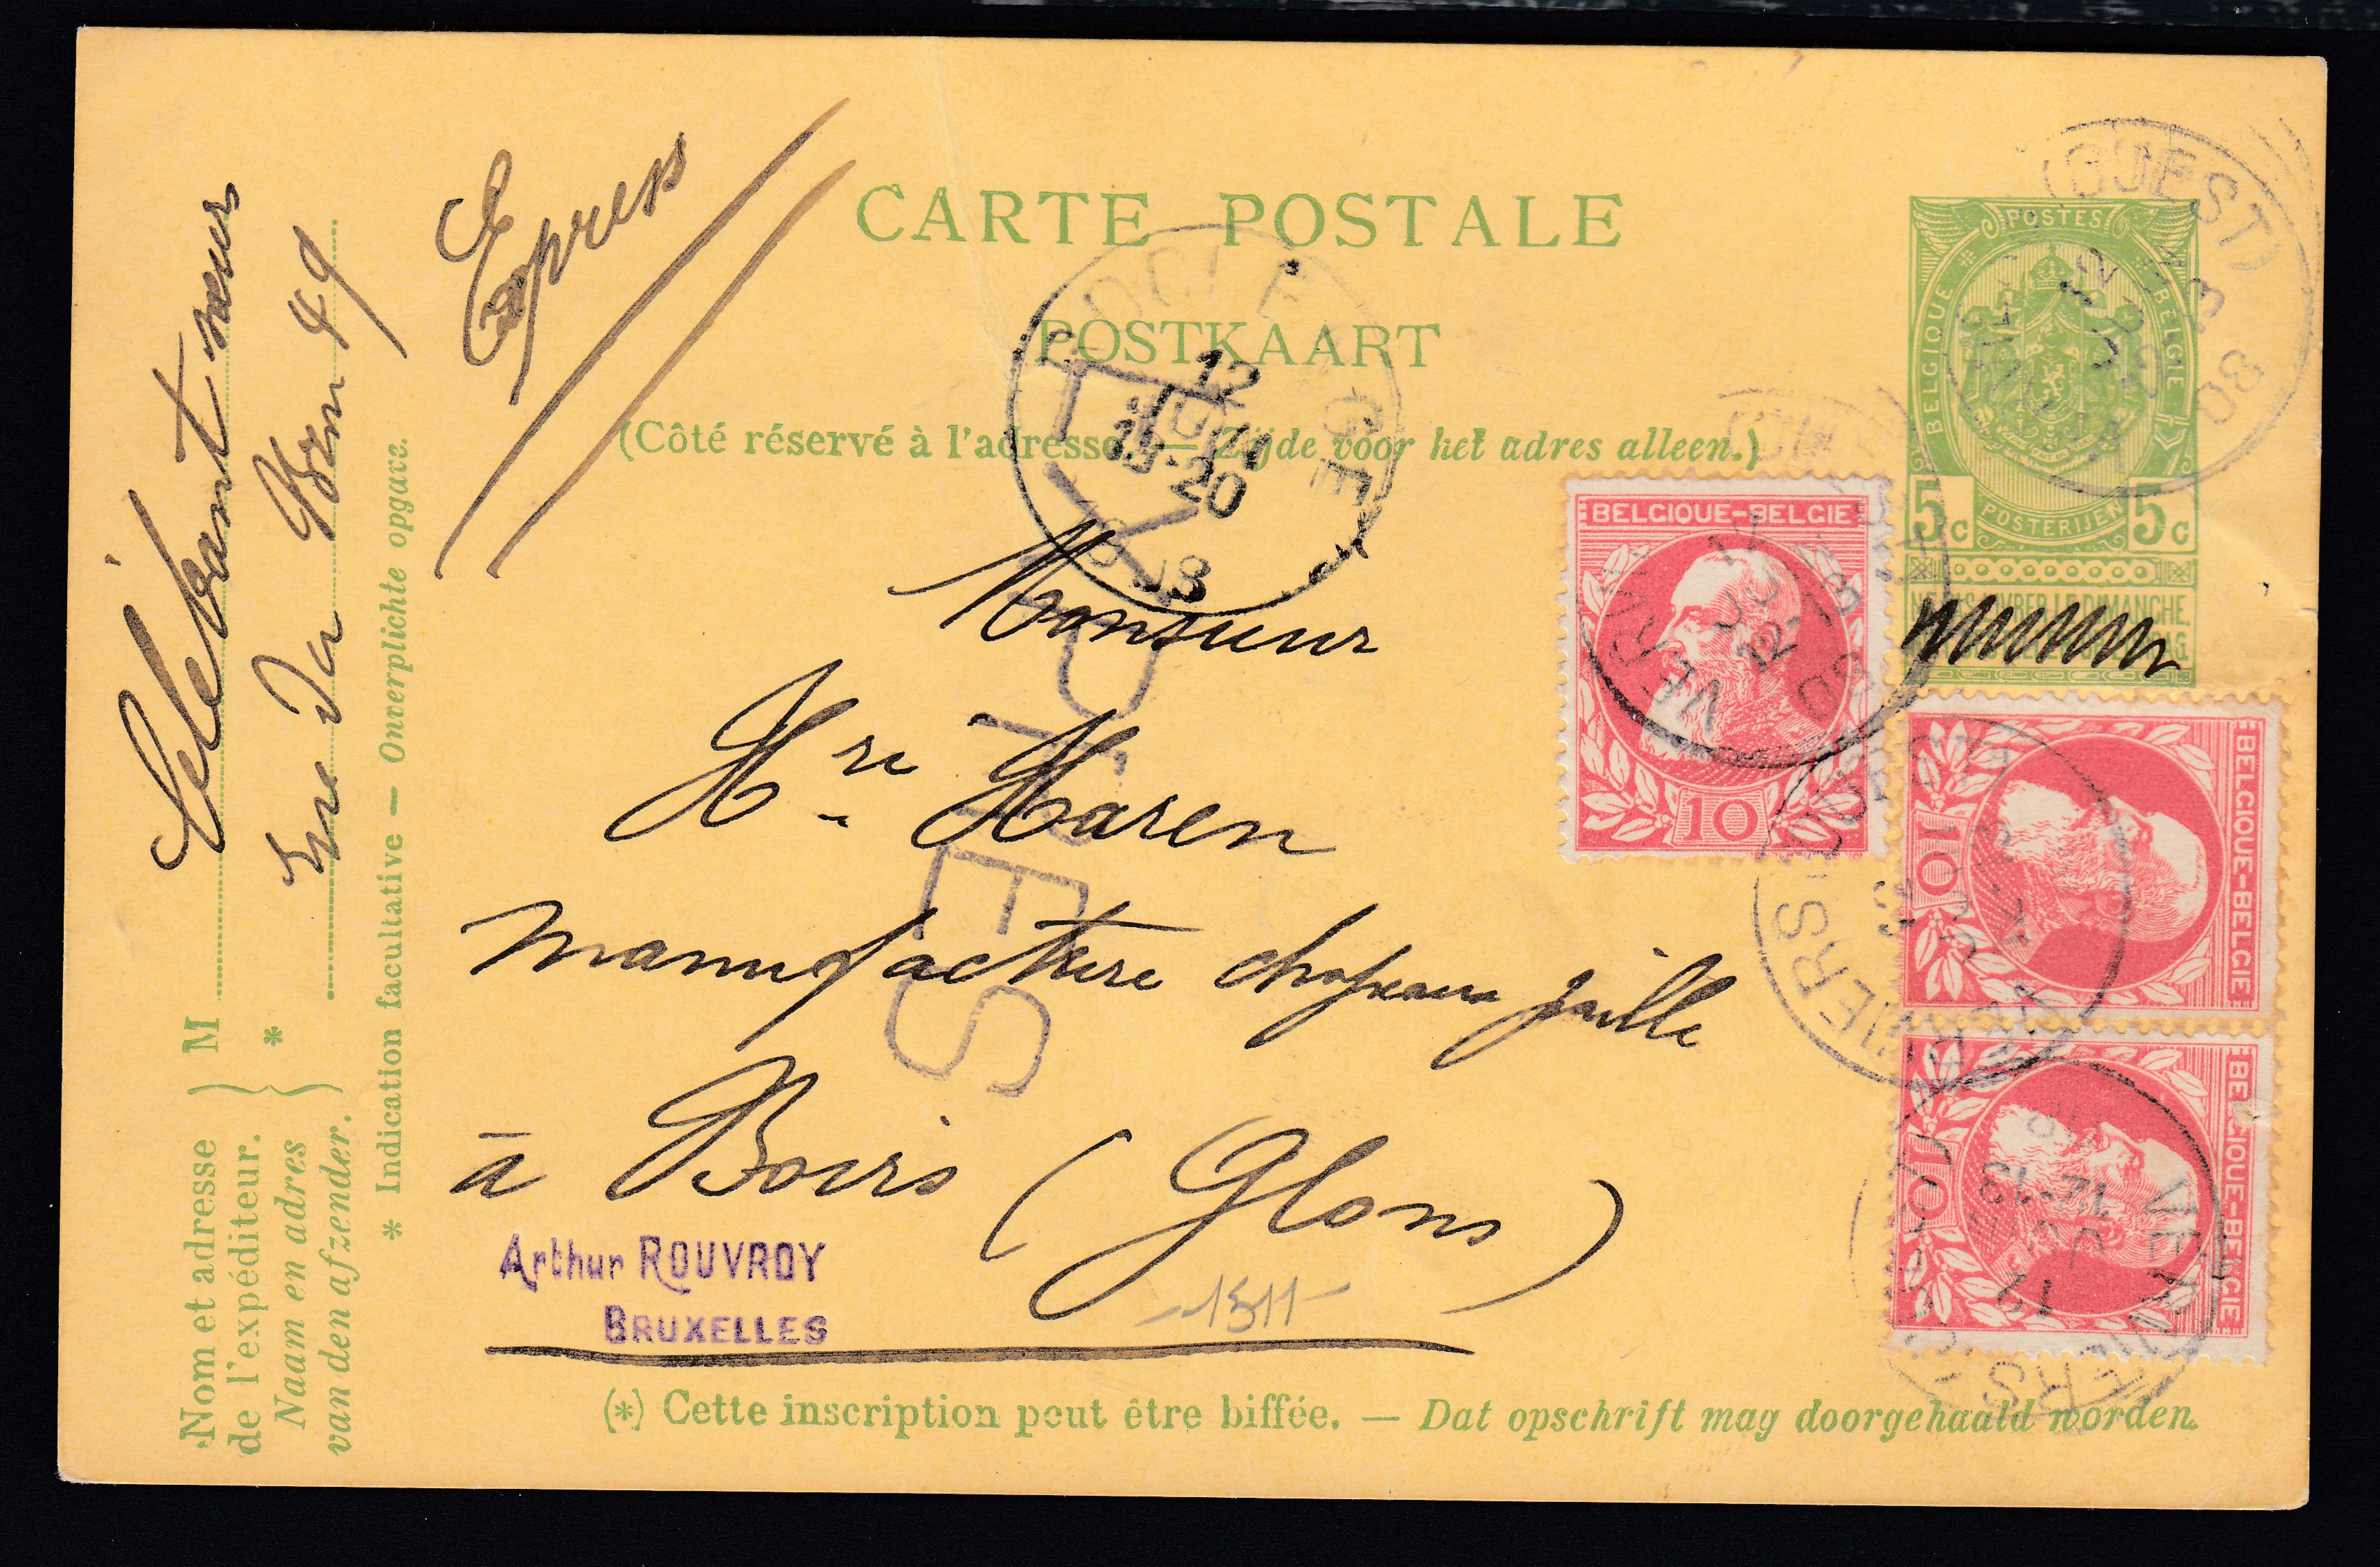 CARTE POSTALE
POSTKAART
(Côté réservé à l'adresse. — Zijde voor het adres alleen.)
Express
POSTES
BELGIQUE
BELGIE
POSTERIJEN
5c 5c
(OUEST)
12
08
BELGIQUE-BELGIE
10
BELGIQUE-BELGIE
10
BELGIQUE-BELGIE
10
VERVIERS
VERVIERS
12
15-20
Monsieur
Hri Haren
manufacture chapeaux paille
à Boirs (Glons)
Arthur ROUVROY
BRUXELLES
1311
(*) Cette inscription peut être biffée. — Dat opschrift mag doorgehaald worden.
Nom et adresse
de l'expéditeur.
Naam en adres
van den afzender.
M
*
49
* Indication facultative — Onverplichte opgave.